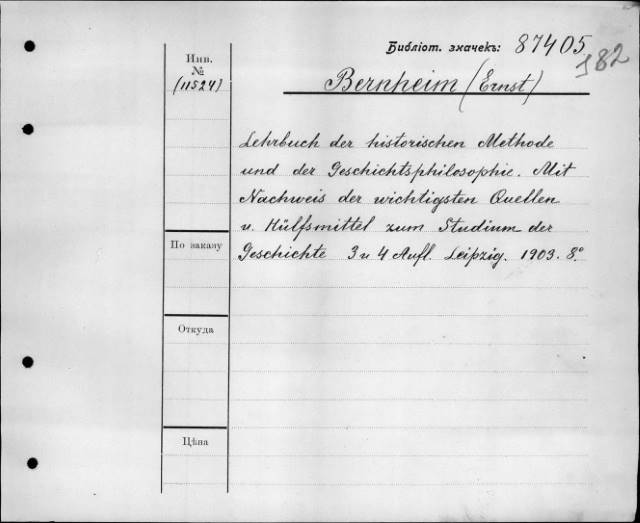 Библіот. значекъ: 87405
182
Инв.
№
(11524)
Bernheim (Ernst)
Lehrbuch der historischen Methode
und der Geschichtsphilosophie. Mit
Nachweis der wichtigsten Quellen
u. Hülfsmittel zum Studium der
Geschichte 3 u 4 Aufl. Leipzig. 1903. 8°
По заказу
Откуда
Цѣна